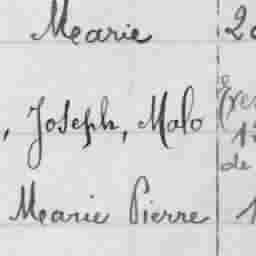 Mearie
, Joseph, Malo
de
Mearie Pierre